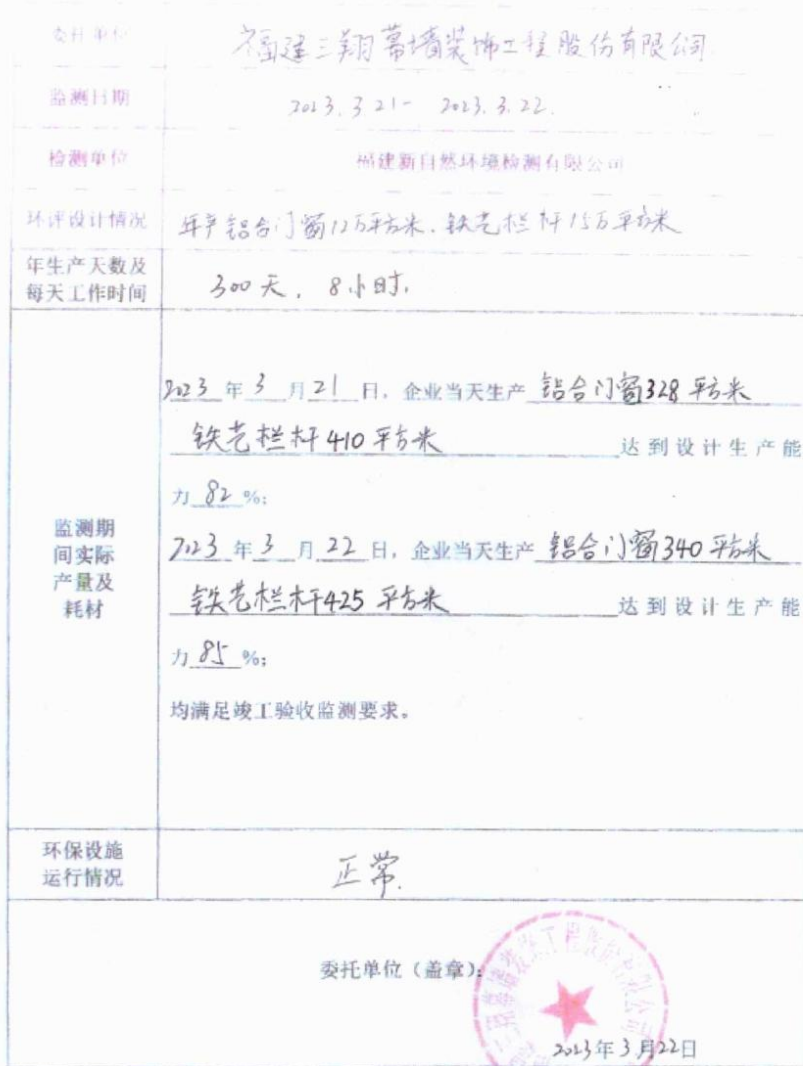 委托单位 福建三翔幕墙装饰工程股份有限公司
监测日期 2023.3.21- 2023.3.22.
检测单位 福建新自然环境检测有限公司
环评设计情况 年产铝合门窗12万平方米.铁艺栏杆15万平方米
年生产天数及
每天工作时间
300天, 8小时.
监测期
间实际
产量及
耗材
2023年3月21日,企业当天生产 铝合门窗328平方米
铁艺栏杆410平方米 达到设计生产能
力82%;
2023年3月22日,企业当天生产 铝合门窗340平方米
铁艺栏杆425平方米 达到设计生产能
力85%;
均满足竣工验收监测要求。
环保设施
运行情况
正常.
委托单位(盖章):
2023年3月22日